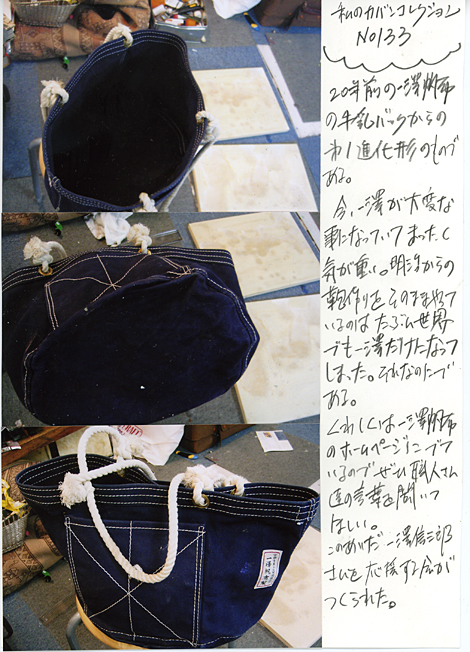 私のカバンコレクション
No133
20年前の一澤帆布
の牛乳バックからの
第1進化形のもので
ある。
今、一澤が大変な
事になっていてまったく
気が重い。明治からの
鞄作りをそのままやって
いるのはたぶん世界
でも一澤だけになって
しまった。それなのにで
ある。
くわしくは一澤帆布
のホームページにでて
いるのでぜひ職人さん
達の言葉を聞いて
ほしい。
このあいだ一澤信三郎
さんを応援する会が
つくられた。
一澤帆布